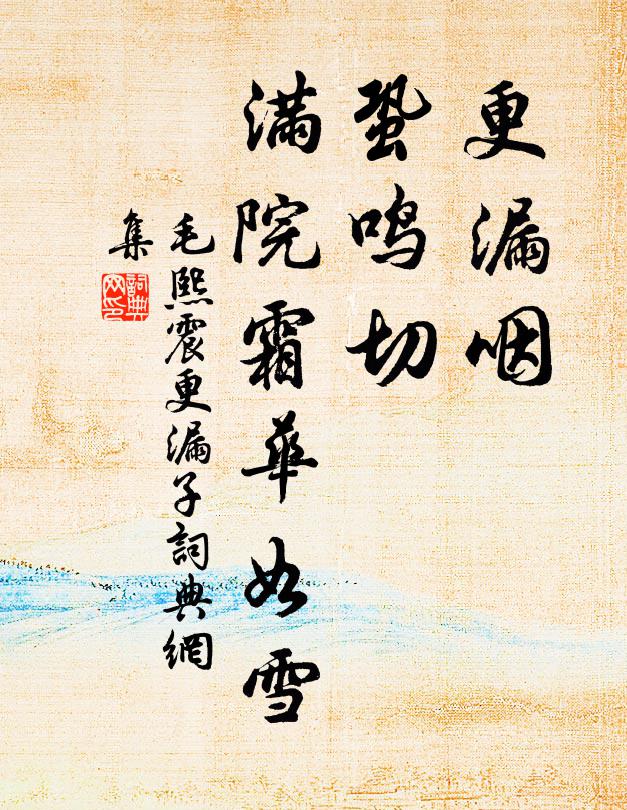 更漏咽
蛩鸣切
满院霜华如雪
毛熙震更漏子詞典網
集
詞典网印